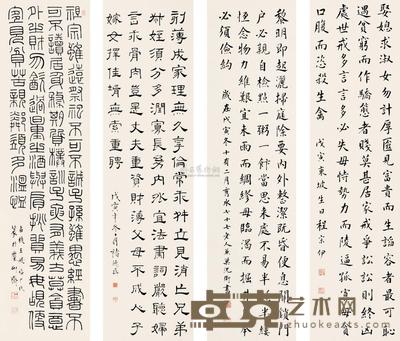 娶媳求淑女勿計厚匲見富貴而生諂容者最可恥
遇貧窮而作驕態者賤莫甚居家戒爭訟訟則終凶
處世戒多言言多必失毋恃勢力而陵逼孤寡毋貪
口腹而恣殺生禽 戊寅東坡生日程宗伊
黎明即起灑掃庭除要內外整潔既昏便息關鎖門
戶必親自檢點一粥一飯當思來處不易半絲半縷
恆念物力維艱宜未雨而綢繆毋臨渴而掘井自奉
必須儉約
歲在戊寅冬十有二月
刻薄成家理無久享倫常乖舛立見消亡兄弟叔
姪須分多潤寡長幼內外宜法肅詞嚴聽婦
言乖骨肉豈是丈夫重資財薄父母不成人子
嫁女擇佳壻毋索重聘
祖宗雖遠祭祀不可不誠子孫雖愚經書不
可不讀居身務期質樸訓子要有義方莫貪意
外之財勿飲過量之酒與肩挑貿易毋佔便
宜見貧苦親鄰須多溫恤